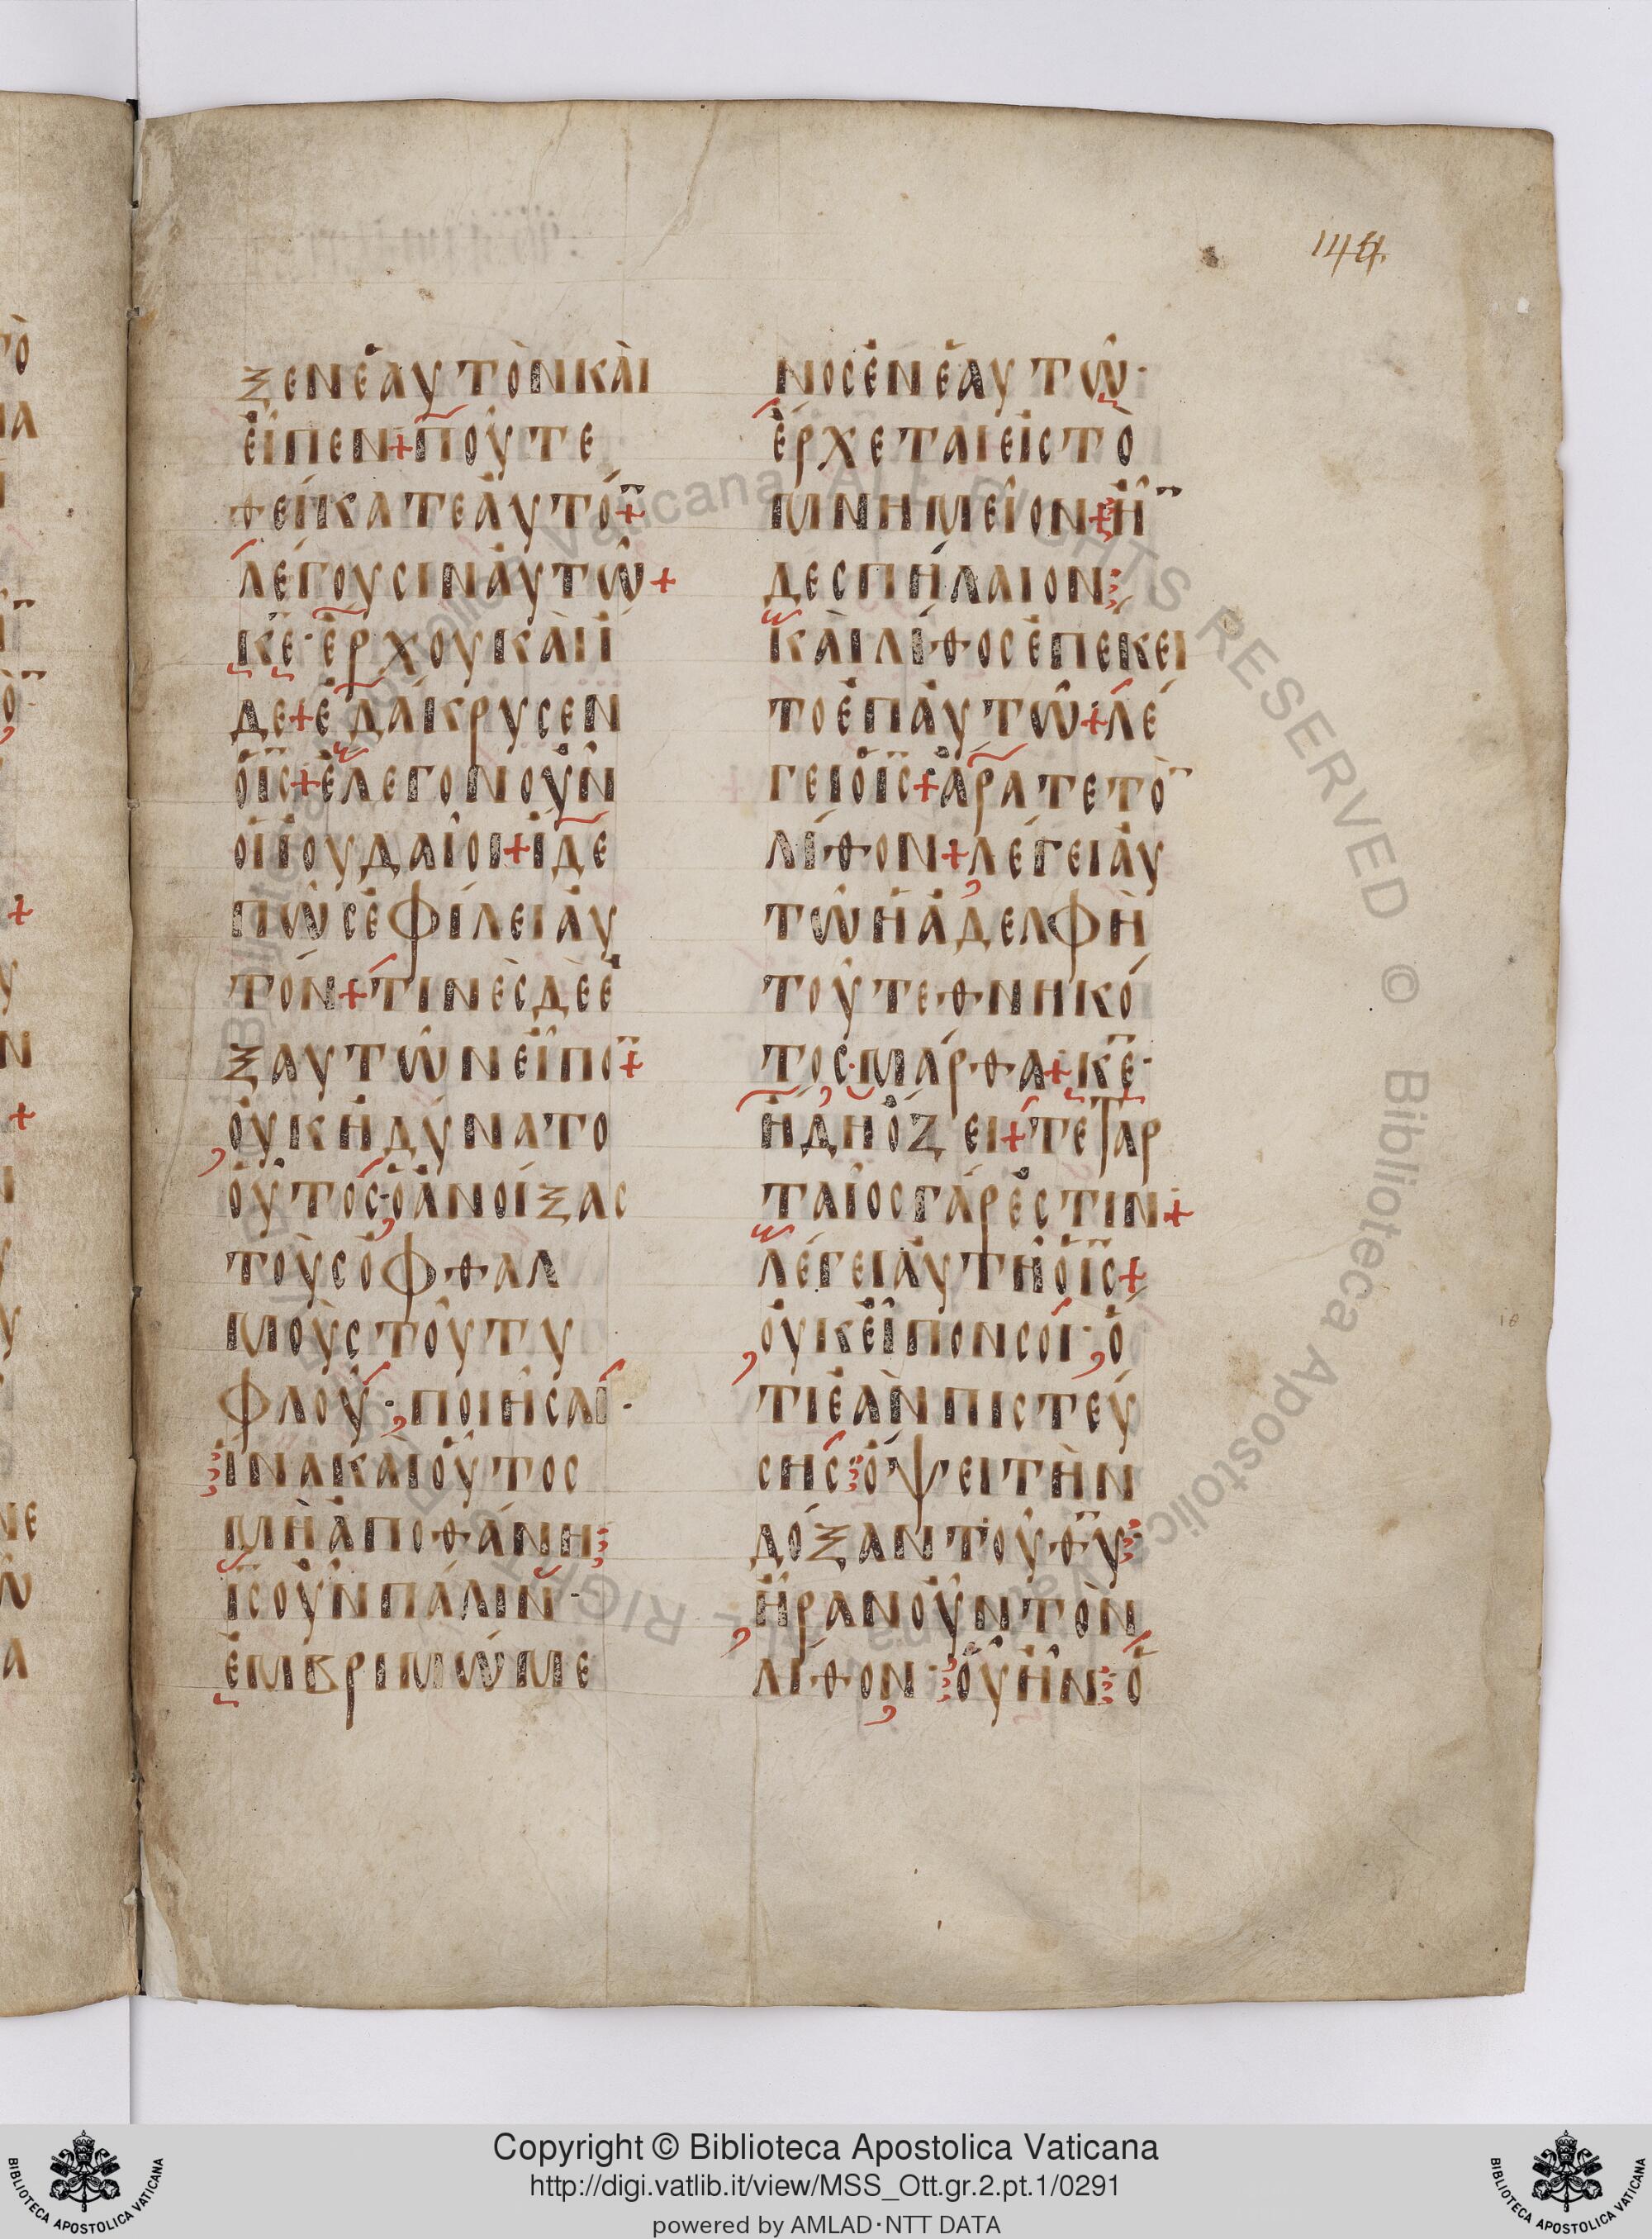 144.
ξενἑαυτὸνκὰι
ἐῖπεν+ποῦτε
θείκατεἀυτό¨+
λέγουσινἀυτῶ+
κ̅ε̅·ἔρχουκὰιἴ
δε+ἐδάκρυσεν
ὁι̅ς̅+ἔλεγονοὖν
οἱἰουδαῖοι+ἴδε
πῶςἐφίλειἀυ
τόν+τινὲςδὲἐ
ξαυτῶνεἶπο¨+
οὐκἠδύνατο
οὗτος·ὁἀνοίξας
τοὺςὀφθαλ
μοὺςτοῦτυ
φλοῦ·ποιῆσαι·
ἵνακαὶοὗτος
μὴἀποθάνη⁝
ι̅ς̅οὖνπάλιν·
ἐμβριμώμε
νοςἐνἑαυτῶ·
ἔρχεταιεἰςτὸ
μνημεῖον+ἦ¨
δεσπήλαιον⁝
κὰιλίθοςἐπέκει
τοἐπἀυτῶ+λέ
γειὁι̅ς̅+ἄρατετὸ¨
λίθον+λέγειἀυ
τῶἡἀδελφὴ
τοῦτεθνηκό
τος·μάρθα+κ̅ε̅·
ἤδηὄζει+τεταρ
ταῖοςγάρἐστιν+
λέγειἀυτῆὁι̅ς̅+
οὐκεἶπονσοι·ὅ
τιἐὰνπιστεύ
σης⁝ὄψειτὴν
δόξαντοῦθ̅υ̅⁝
ἦρανοὖντὸν
λίθον·⁝οὗἦν⁝ὁ
Copyright © Biblioteca Apostolica Vaticana
http://digi.vatlib.it/view/MSS_Ott.gr.2.pt.1/0291
powered by AMLAD·NTT DATA
BIBLIOTECA APOSTOLICA VATICANA
BIBLIOTECA APOSTOLICA VATICANA